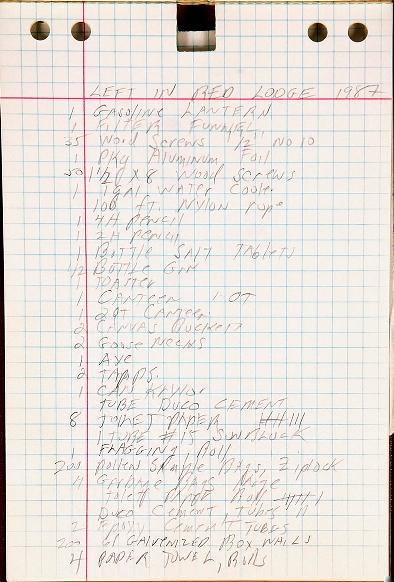 LEFT IN RED LODGE 1987
1 GASOLINE LANTERN
1 FILTER FUNNEL
35 Wood Screws 1/2 NO 10
1 PKg Aluminum Foil
50 1 1/2 X 8 Wood Screws
1 1 gal Water Cooler
100 ft. Nylon rope
1 4H Pencil
1 2H Pencil
1 Bottle SALT TAblets
1/2 BOTTLE GIN
1 TOASTER
1 CANTEEN 1 QT
1 2QT Canteen
2 CANVAS Buckets
2 Goose Necks
1 Axe
2 TARPS.
1 CAN
TUBE DUCO CEMENT
8 TOILET PAPER
1 TUBE #15 SUNBLOCK
1 FLAGGING, Roll
200 Pollen SAmple BAgs, Ziplock
11 Garbage Bags
Toilet Paper Roll
Duco Cement, Tubes 11
2 Epoxy Cement TUBES
200 6d GALVANIZED BOX NAILS
4 PAPER TOWEL, Rolls